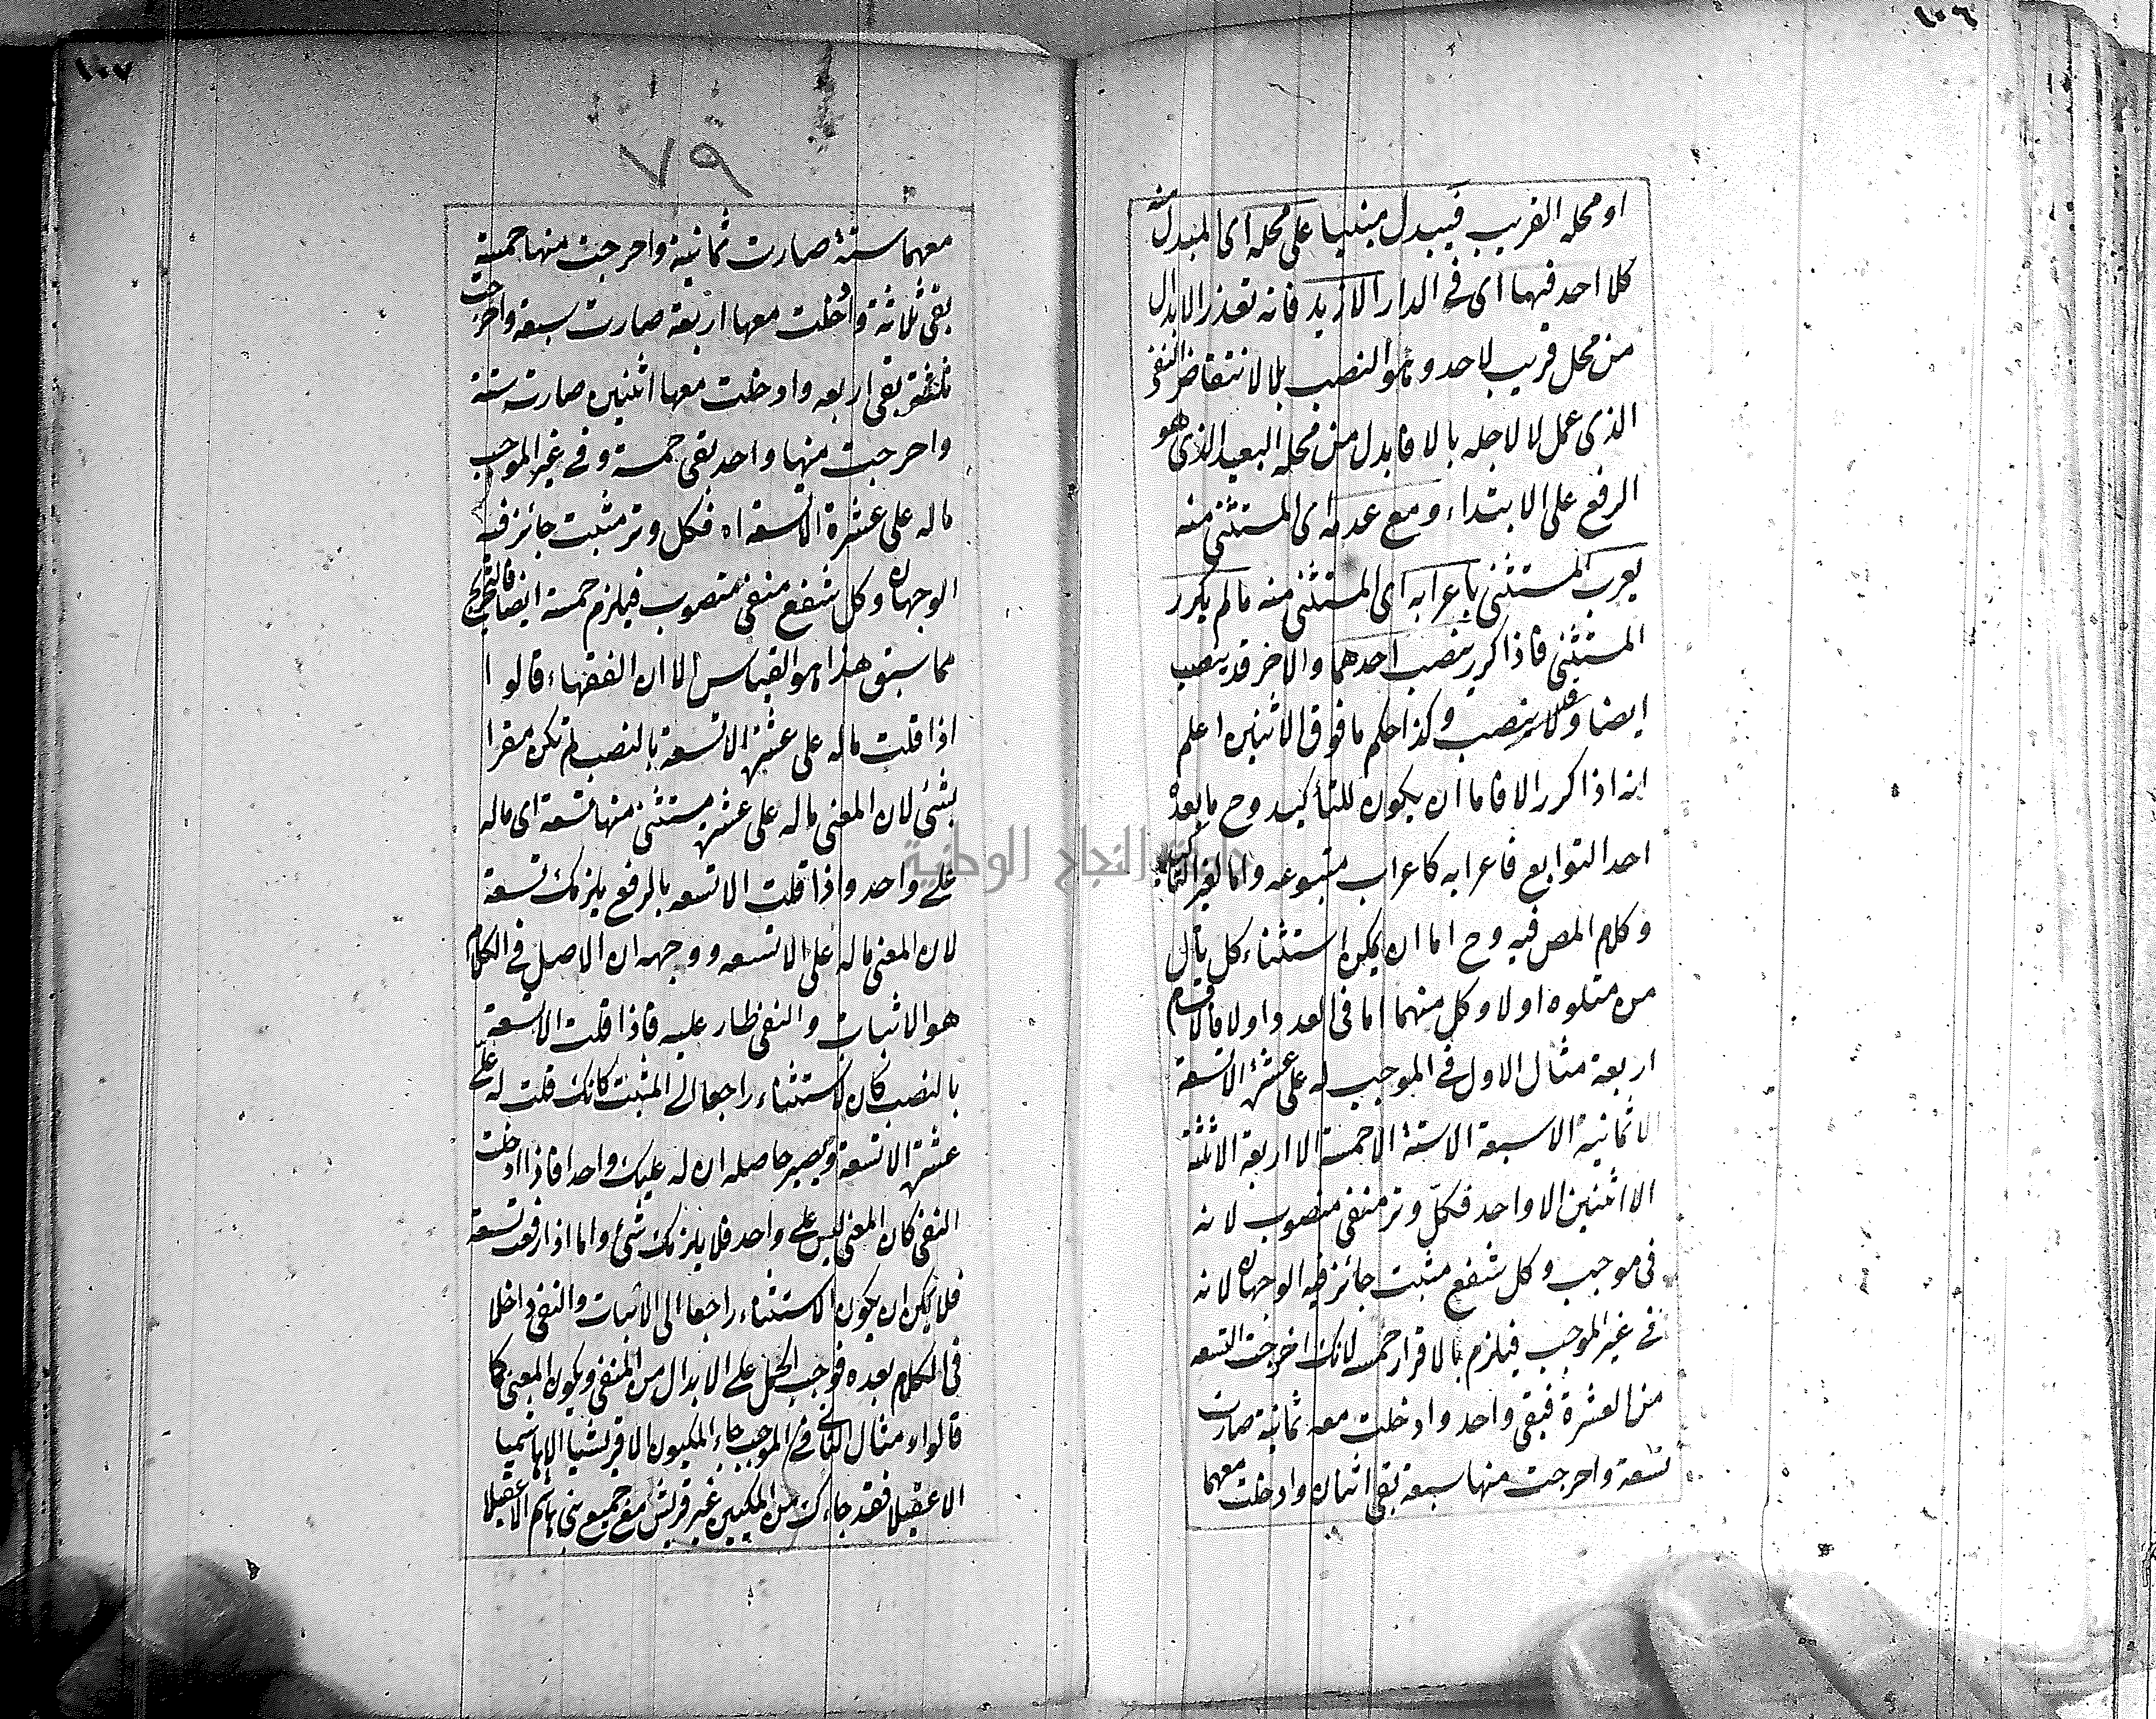 ١٠٦
او محله القريب فيبدل مبنيا على محله اى المبدل منه
كلا احد فيها اى فى الدار الا زيد فانه تعذر الابدال
من محل قريب لاحد وهو النصب بلا لانتقاض النفى
الذى عمل لا لاجله بالا فابدل من محله البعيد الذى هو
الرفع على الابتداء ومع عدمه اى المستثنى منه
يعرب المستثنى باعرابه اى المستثنى منه مالم يكرر
المستثنى فاذا كرر ينصب احدهما والاخر قد ينصب
ايضا وقد لا ينصب وكذا حكم ما فوق الاثنين اعلم
انه اذا كرر الا فاما ان يكون للتأكيد وح ما بعد
احد التوابع فاعرابه كاعراب متبوعه واما لغير التأكيد
وكلام المص فيه وح اما ان يمكن استثناء كل تال
من متلوه اولا وكل منهما اما فى العدد اولا فالاقسام
اربعة مثال الاول فى الموجب له على عشرة الا تسعة
الا ثمانية الا سبعة الا ستة الا خمسة الا اربعة الا ثلثة
الا اثنين الا واحد فكل وتر منفى منصوب لانه
فى موجب وكل شفع مثبت جائز فيه الوجهان لانه
فى غير الموجب فيلزم بالاقرار خمسة لانك اخرجت التسعه
من العشرة فبقى واحد وادخلت معه ثمانية صارت
تسعة واخرجت منها سبعة بقى اثنان وادخلت معهما
١٠٧
٧٩
معهما ستة صارت ثمانية واخرجت منها خمسة
بقى ثلاثة وادخلت معها اربعة صارت سبعة واخرجت
ثلثة بقى اربعه وادخلت معها اثنين صارت ستة
واخرجت منها واحد بقى خمسة وفى غير الموجب
ما له على عشرة الا تسعة اه فكل وتر مثبت جائز فيه
الوجهان وكل شفع منفى منصوب فيلزم خمسة ايضا فالتخريج
مما سبق هذا هو القياس الا ان الفقهاء قالوا
اذا قلت ما له على عشرة الا تسعة بالنصب لم تكن مقرا
بشئ لان المعنى ما له على عشرة مستثنى منها تسعة اى ما له
على واحد واذا قلت الا تسعه بالرفع يلزمك تسعة
لان المعنى ما له على الا تسعه ووجهه ان الاصل فى الكلام
هو الاثبات والنفى طار عليه فاذا قلت الا تسعة
بالنصب كان الاستثناء راجعا الى المثبت كانك قلت له على
عشرة الا تسعة ويصير حاصله ان له عليك واحدا فاذا ادخلت
النفى كان المعنى ليس على واحد فلا يلزمك شئ واما اذا رفعت تسعة
فلا يمكن ان يكون الاستثناء راجعا الى الاثبات والنفى داخلا
فى الكلام بعده فوجب الحمل على الابدال من المنفى ويكون المعنى كما
قالوا ومثال الثانى فى الموجب جاء المكيون الا قريشيا الا هاشميا
الا عقيلا فقد جاءك من المكيين غير قريش مع جميع بنى هاشم الا عقيلا
جامعة النجاح الوطنية